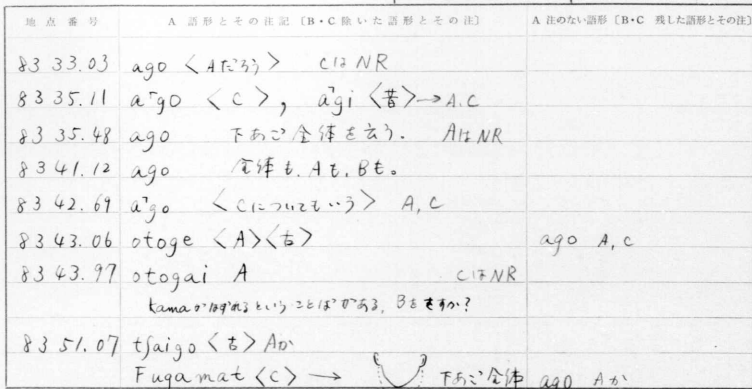 地点番号 A 語形とその注記〔B・C 除いた語形とその注〕 A 注のない語形〔B・C 残した語形とその注〕
83 33.03 ago 〈Aだろう〉 CはNR
83 35.11 a˥go 〈C〉, a˥gi 〈昔〉→A.C
83 35.48 ago 下あご全体を云う. AはNR
83 41.12 ago 全体も, Aも, Bも。
83 42.69 a˥go 〈Cについてもいう〉 A, C
83 43.06 otoge 〈A〉〈古〉 ago A, C
83 43.97 otogai A CはNR
kamaがはずれるということばがある, Bをさすか?
83 51.07 tʃaigo 〈古〉 Aか
Fugamat 〈C〉 → 下あご全体 ago Aか